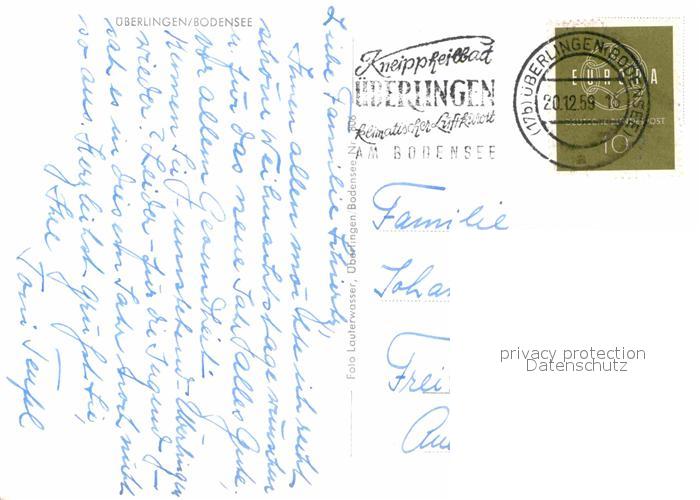 ÜBERLINGEN/BODENSEE
Liebe Familie
Ihnen allen möchte ich recht
schöne Weihnachtstage wünschen
u. für das neue Jahr alles Gute,
vor allem Gesundheit.
Kennen Sie umstehend - Überlingen
wieder? Leider - für die Jugend -
sah es in diesem Jahr noch nicht
so aus. Herzlichst grüßt Sie,
Ihre
Toni Teufel
Foto Lauterwasser, Überlingen, Bodensee, Nr.
Kneippheilbad
ÜBERLINGEN
klimatischer Luftkurort
AM BODENSEE
(17b) ÜBERLINGEN (BODENSEE)
20.12.59
a
EUROPA
DEUTSCHE BUNDESPOST
10
Familie
Joha
Frei
privacy protection
Datenschutz